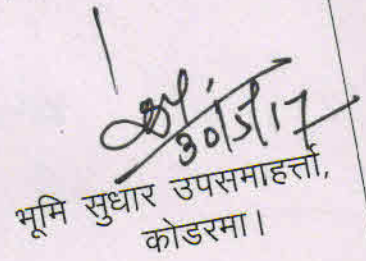 30/5/17
भूमि सुधार उपसमाहर्त्ता,
कोडरमा।